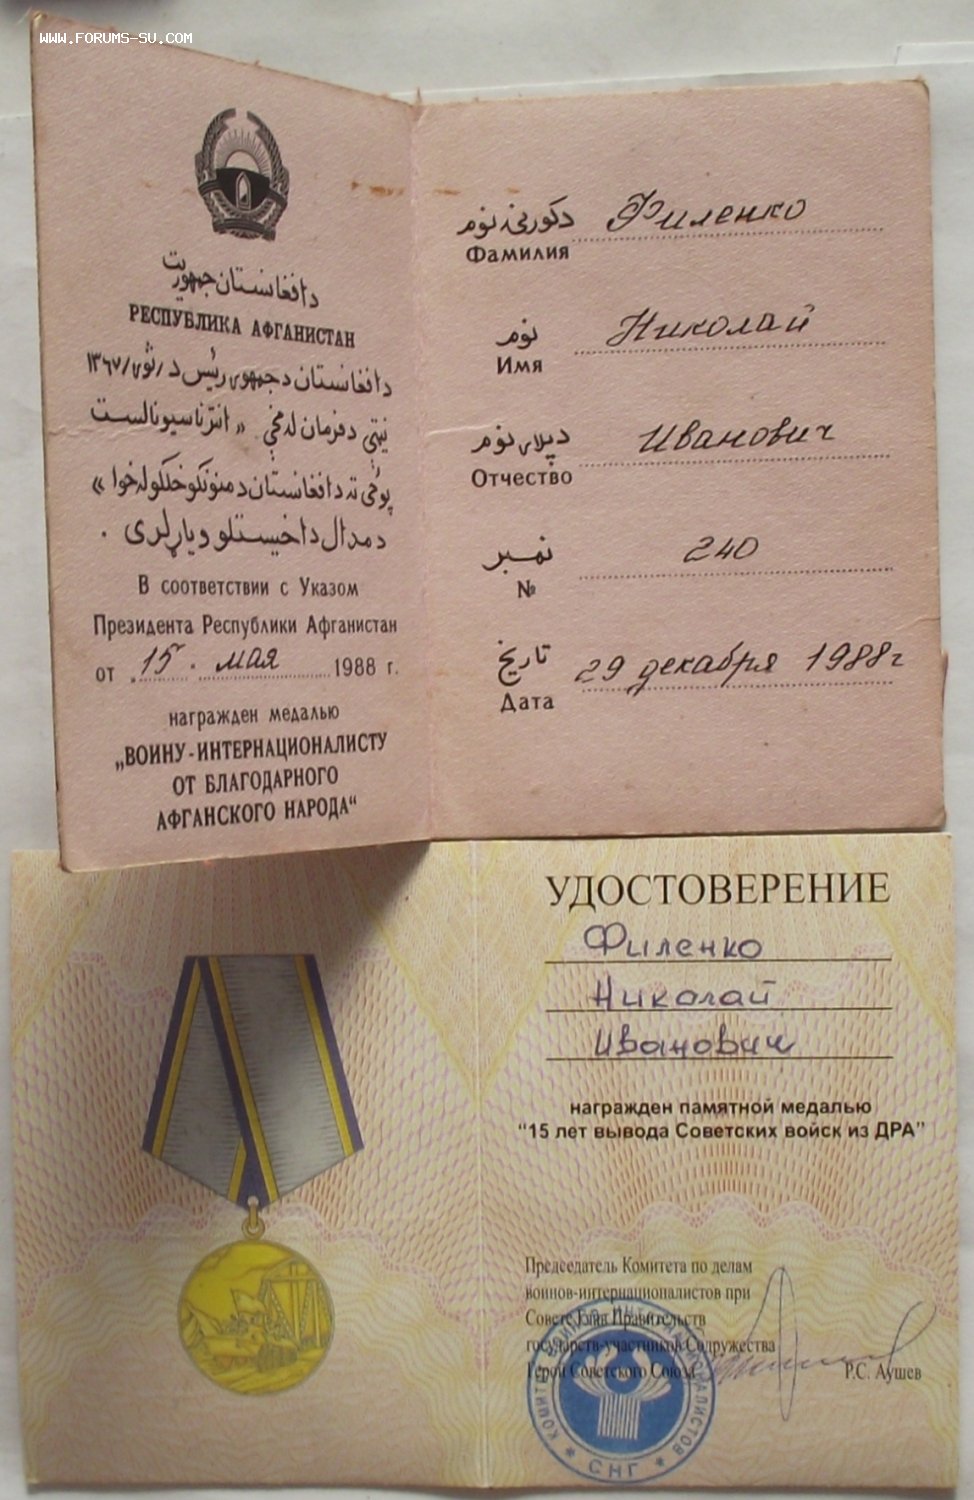 WWW.FORUMS-SU.COM
دافغانستان جمهوریت
РЕСПУБЛИКА АФГАНИСТАН
دافغانستان دجمهوری رئیس د /ثور/ ۱۳۶۷
نیټې دفرمان له مخې «انترناسیونالست
دمدال داخیستلو ویاړلری .
В соответствии с Указом
Президента Республики Афганистан
от „15. мая 1988 г.
награжден медалью
„ВОИНУ-ИНТЕРНАЦИОНАЛИСТУ
ОТ БЛАГОДАРНОГО
АФГАНСКОГО НАРОДА“
دکورنۍ نوم Филенко
Фамилия
نوم Николай
Имя
دپلار نوم Иванович
Отчество
نمبر 240
№
تاریخ 29 декабря 1988г
Дата
УДОСТОВЕРЕНИЕ
Филенко
Николай
Иванович
награжден памятной медалью
"15 лет вывода Советских войск из ДРА"
Председатель Комитета по делам
воинов-интернационалистов при
Совете Глав Правительств
государств-участников Содружества
Герой Советского Союза Р.С. Аушев
КОМИТЕТ ВОИНОВ-ИНТЕРНАЦИОНАЛИСТОВ
СНГ